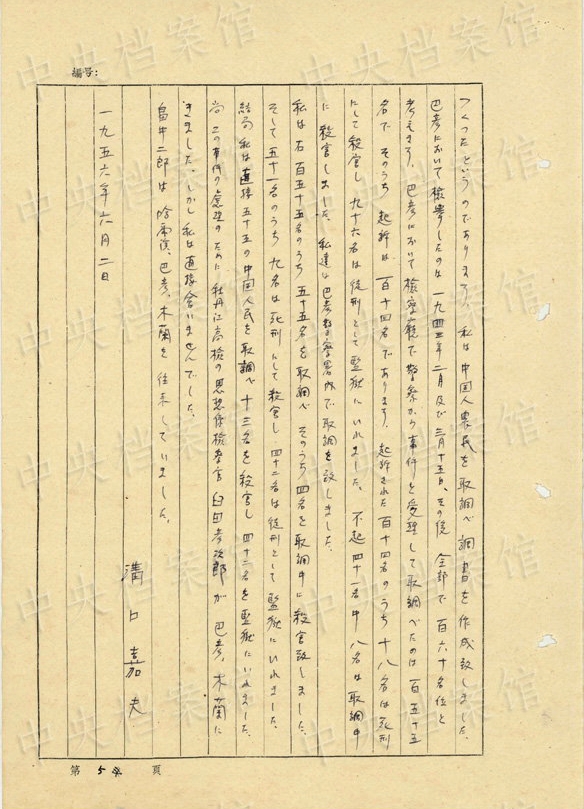 編号:
つくったというのであります。私は中国人農民を取調べ調書を作成致しました。
巴彦において検挙したのは一九四三年二月及び三月十五日、その後、全部で百六十名位と
考えます。巴彦において検察庁で警察から事件を受理して取調べたのは百五十五
名で、そのうち起訴は百十四名であります。起訴された百十四名のうち十八名は死刑
にして殺害し九十六名は徒刑として監獄にいれました。不起四十一名中八名は取調中
に殺害しました。私達は巴彦警察署内で取調を致しました。
私は右百五十五名のうち五十五名を取調べ、そのうち四名を取調中に殺害致しました。
そして五十一名のうち九名は死刑にして殺害し四十二名は徒刑として監獄にいれました。
結局私は直接五十五の中国人民を取調べ十三名を殺害し四十二名を監獄にいれました。
尚この事件の處理のために牡丹江高検の思想係検察官臼田彦次郎が巴彦、木蘭に
きました。しかし私は直接会いませんでした。
畠中二郎は哈爾濱、巴彦、木蘭を往来していました。
一九五六年六月二日
溝口嘉夫
第 54 頁
中央档案馆